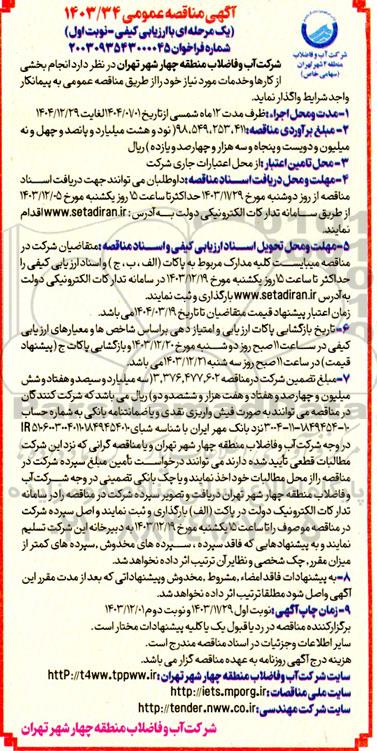 آگهی مناقصه عمومی ۱۴۰۳/۳۴
(یک مرحله ای با ارزیابی کیفی - نوبت اول)
شماره فراخوان ۲۰۰۳۰۹۳۵۴۳۰۰۰۰۴۵
شرکت آب و فاضلاب
منطقه ۴ شهر تهران
(سهامی خاص)
شرکت آب و فاضلاب منطقه چهار شهر تهران در نظر دارد انجام بخشی
از کارها و خدمات مورد نیاز خود را از طریق مناقصه عمومی به پیمانکار
واجد شرایط واگذار نماید.
۱- مدت و محل اجراء: ظرف مدت ۱۲ ماه شمسی از تاریخ ۱۴۰۴/۰۱/۰۱ لغایت ۱۴۰۴/۱۲/۲۹
۲- مبلغ برآوردی مناقصه: ۹۸,۵۴۹,۲۵۳,۴۱۱ (نود و هشت میلیارد و پانصد و چهل و نه
میلیون و دویست و پنجاه و سه هزار و چهارصد و یازده) ریال
۳- محل تامین اعتبار: از محل اعتبارات جاری شرکت
۴- مهلت و محل دریافت اسناد مناقصه: داوطلبان می توانند جهت دریافت اسناد
مناقصه از روز دوشنبه مورخ ۱۴۰۳/۱۱/۲۹ حداکثر تا ساعت ۱۵ روز یکشنبه مورخ ۱۴۰۳/۱۲/۰۵
از طریق سامانه تدارکات الکترونیکی دولت به آدرس: www.setadiran.ir اقدام
نمایند.
۵- مهلت و محل تحویل اسناد ارزیابی کیفی و اسناد مناقصه: متقاضیان شرکت در
مناقصه میبایست کلیه مدارک مربوط به پاکات (الف، ب، ج) و اسناد ارزیابی کیفی را
حداکثر تا ساعت ۱۵ روز یکشنبه مورخ ۱۴۰۳/۱۲/۱۹ در سامانه تدارکات الکترونیکی دولت
به آدرس www.setadiran.ir بارگذاری و ثبت نمایند.
زمان اعتبار پیشنهاد قیمت متقاضیان تا تاریخ ۱۴۰۴/۰۳/۱۹ می باشد.
۶- تاریخ بازگشایی پاکات ارزیابی و امتیاز دهی براساس شاخص ها و معیارهای ارزیابی
کیفی در ساعت ۱۱ صبح روز دوشنبه مورخ ۱۴۰۳/۱۲/۲۰ و بازگشایی پاکات ج (پیشنهاد
قیمت) در ساعت ۱۱ صبح روز سه شنبه ۱۴۰۳/۱۲/۲۱ می باشد.
۷- مبلغ تضمین شرکت در مناقصه ۳,۳۷۶,۴۷۷,۶۰۲ (سه میلیارد و سیصد و هفتاد و شش
میلیون و چهارصد و هفتاد و هفت هزار و ششصد و دو) ریال می باشد که شرکت کنندگان
در مناقصه می توانند به صورت فیش واریزی نقدی و یا ضمانتنامه بانکی به شماره حساب
نزد بانک مهر ایران با شناسه شبای
در وجه شرکت آب و فاضلاب منطقه چهار شهر تهران و یا مناقصه گرانی که نزد این شرکت
مطالبات قطعی تأیید شده دارند می توانند درخواست تأمین مبلغ سپرده شرکت در
مناقصه را از محل مطالبات خود اخذ نمایند و یا چک بانکی تضمینی در وجه شرکت آب
و فاضلاب منطقه چهار شهر تهران دریافت و تصویر سپرده شرکت در مناقصه را در سامانه
تدارکات الکترونیک دولت در پاکت (الف) بارگذاری و ثبت نمایند و اصل سپرده شرکت
در مناقصه موصوف را تا ساعت ۱۵ یکشنبه مورخ ۱۴۰۳/۱۲/۱۹ به دبیرخانه این شرکت تسلیم
نمایند و به پیشنهادهایی که فاقد سپرده، سپرده های مخدوش، سپرده های کمتر از
میزان مقرر، چک شخصی و نظایر آن ترتیب اثر داده نخواهد شد.
۸- به پیشنهادات فاقد امضاء، مشروط، مخدوش و پیشنهاداتی که بعد از مدت مقرر این
آگهی واصل شود مطلقا ترتیب اثر داده نخواهد شد.
۹- زمان چاپ آگهی: نوبت اول ۱۴۰۳/۱۱/۲۹ و نوبت دوم ۱۴۰۳/۱۲/۰۱
برگزار کننده مناقصه در رد یا قبول یک یا کلیه پیشنهادات مختار است.
سایر اطلاعات و جزئیات در اسناد مناقصه مندرج است.
هزینه درج آگهی روزنامه به عهده مناقصه گزار می باشد.
سایت شرکت آب و فاضلاب منطقه چهار شهر تهران: httP://t4ww.tppww.ir
سایت ملی مناقصات: http://iets.mporg.ir
سایت شرکت مهندسی: http://tender.nww.co.ir
شرکت آب و فاضلاب منطقه چهار شهر تهران